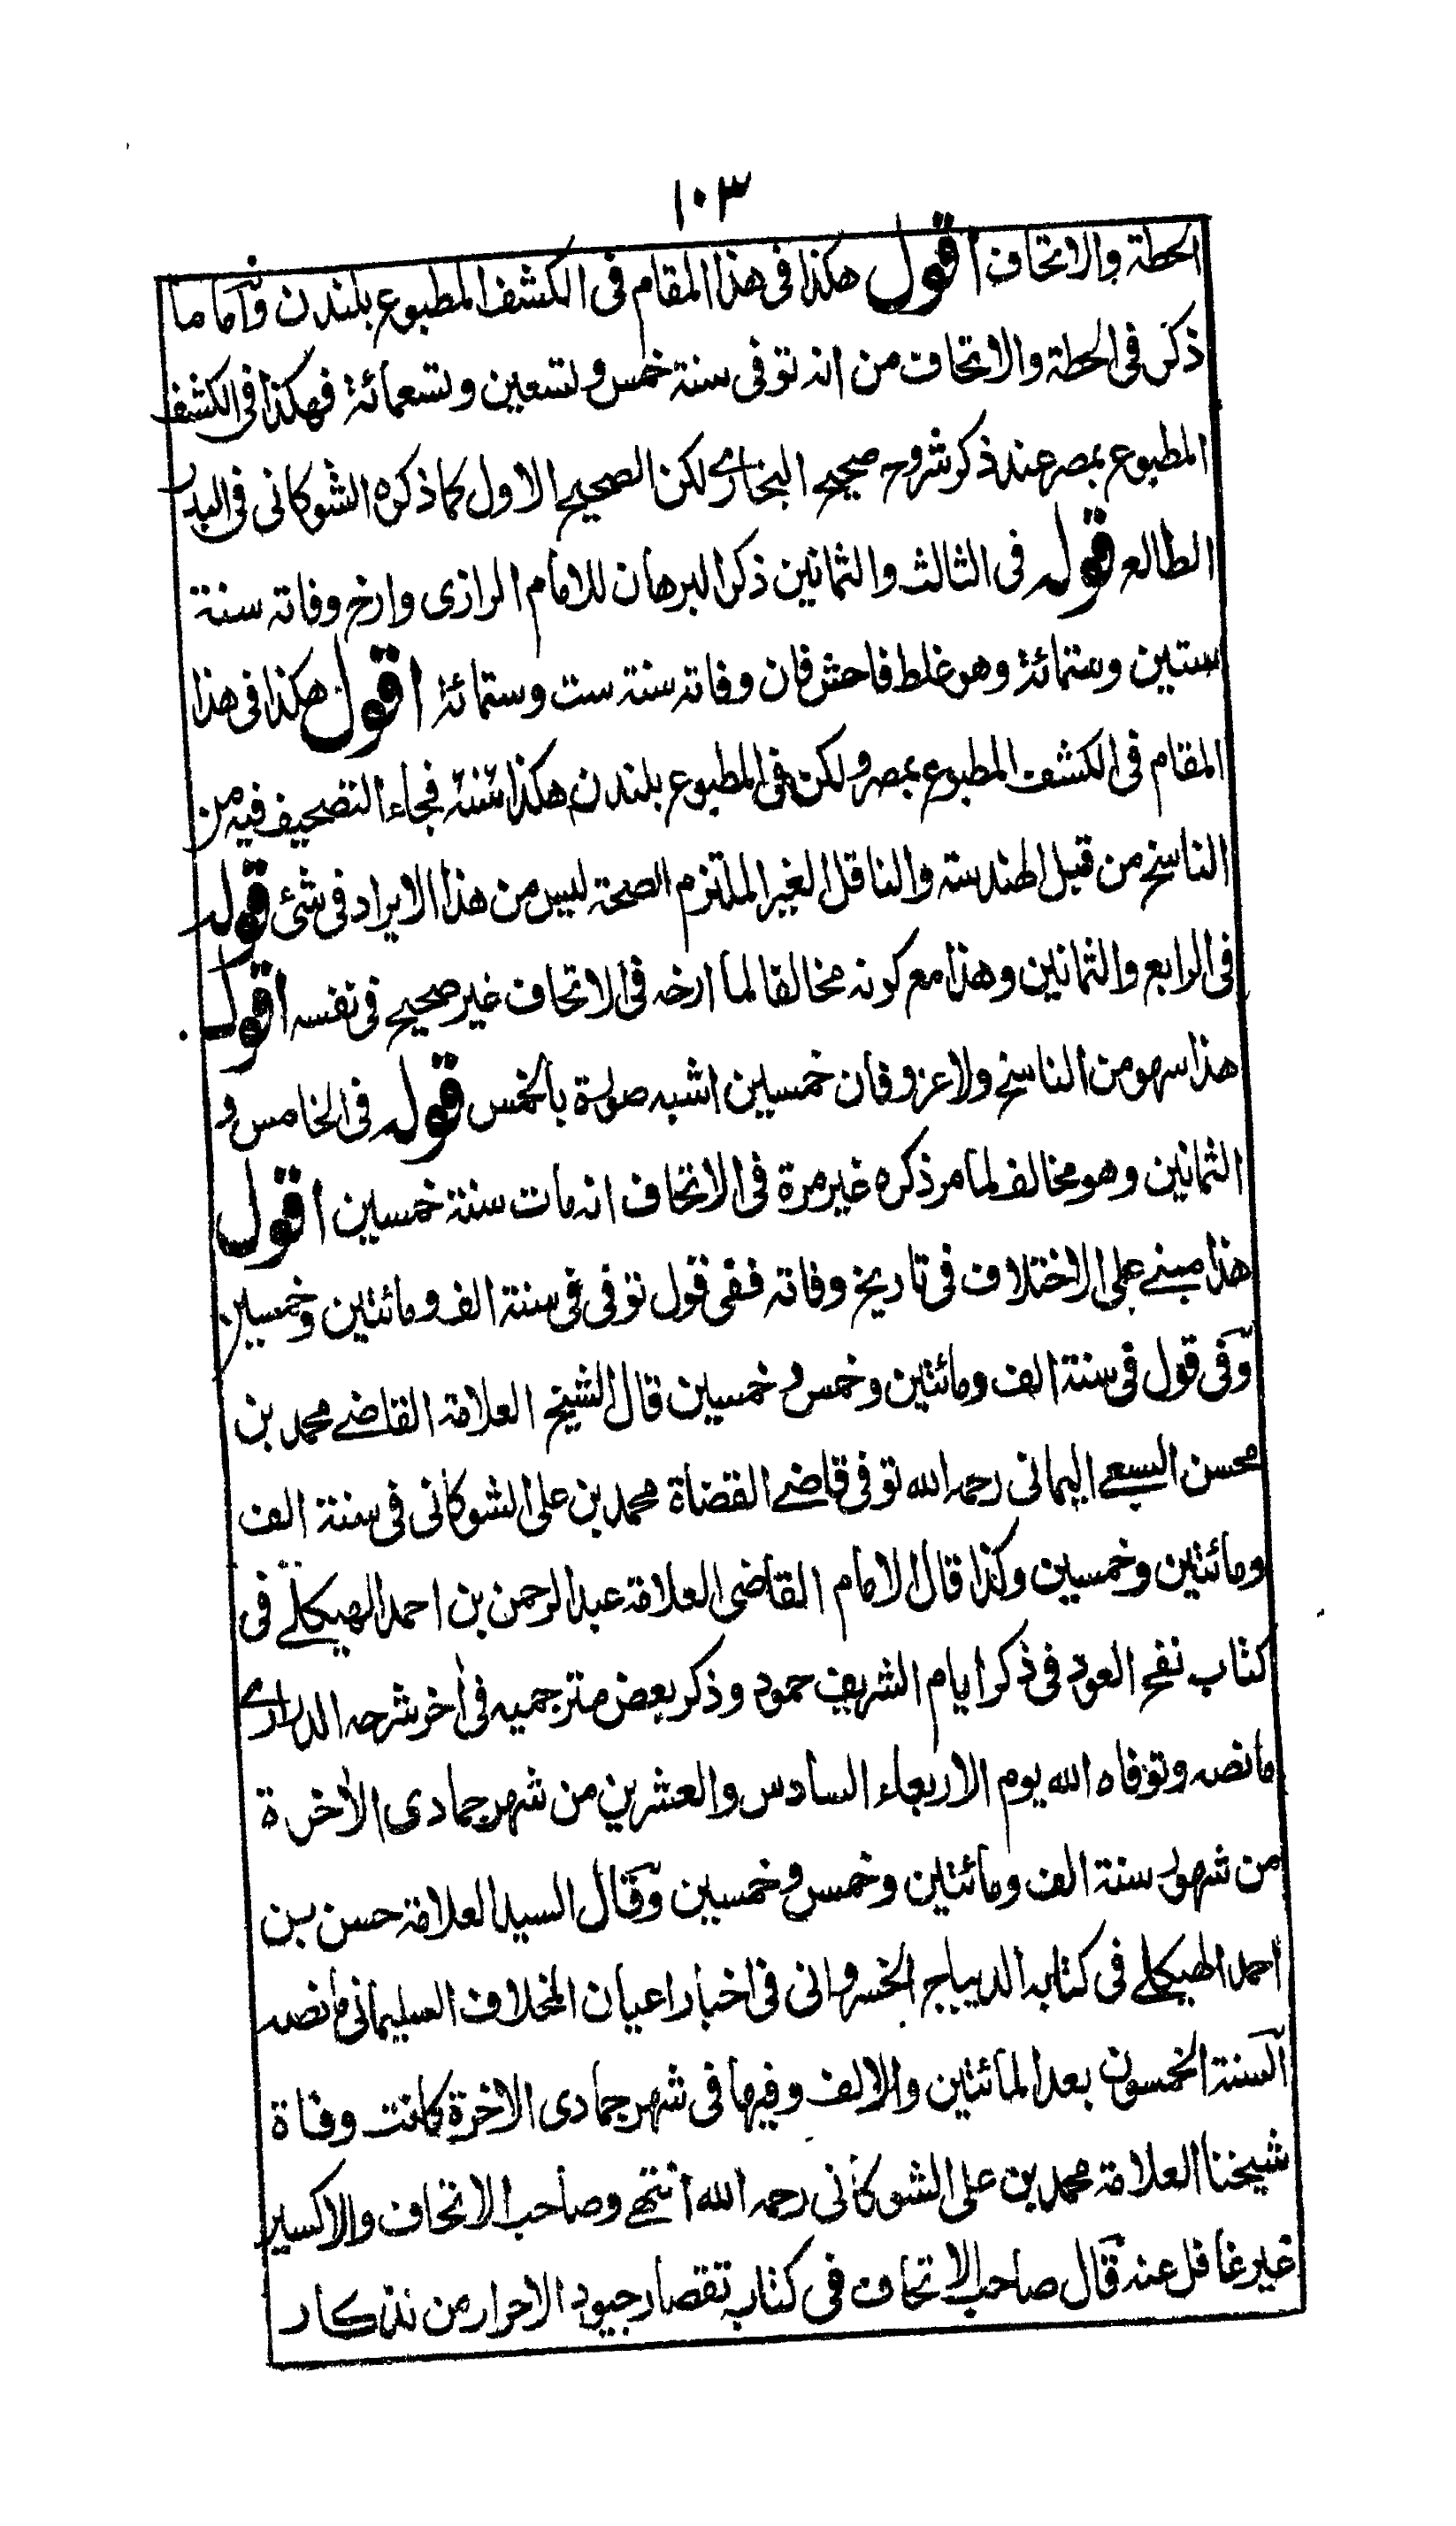 ١٠٣
الحطة والاتحاف اقول هكذا فى هذا المقام فى الكشف المطبوع بلندن وأما ما
ذكر فى الحطة والاتحاف من انه توفى سنة خمس وتسعين وتسعمائة فهكذا فى الكشف
المطبوع بمصر عند ذكر شروح صحيح البخارى لكن الصحيح الاول كما ذكره الشوكانى فى البدر
الطالع قوله فى الثالث والثمانين ذكر البرهان للامام الرازى وارخ وفاته سنة
ستين وستمائة وهو غلط فاحش فان وفاته سنة ست وستمائة اقول هكذا فى هذا
المقام فى الكشف المطبوع بمصر ولكن فى المطبوع بلندن هكذا سنة فجاء التصحيف فيه من
الناسخ من قبل الهندسة والناقل الغير الملتزم الصحة ليس من هذا الايراد فى شئ قوله
فى الرابع والثمانين وهذا مع كونه مخالفا لما ارخه فى الاتحاف غير صحيح فى نفسه اقول
هذا سهو من الناسخ ولا عزو فان خمسين اشبه صورة بالخمس قوله فى الخامس و
الثمانين وهو مخالف لما مر ذكره غير مرة فى الاتحاف انه مات سنة خمسين اقول
هذا مبنے على الاختلاف فى تاريخ وفاته ففى قول توفى فى سنة الف ومائتين وخمسين
وفى قول فى سنة الف ومائتين وخمس و خمسين قال الشيخ العلامة القاضے محمد بن
محسن السبعے اليمانى رحمه الله توفى قاضے القضاة محمد بن على الشوكانى فى سنة الف
ومائتين وخمسين وكذا قال الامام القاضى العلامة عبد الرحمن بن احمد الهيكلے فى
كتاب نفح العود فى ذكر ايام الشريف حمود وذكر بعض مترجميه فى أخر شرحه الدرارے
ما نصه وتوفاه الله يوم الاربعاء السادس والعشرين من شهر جمادى الأخرة
من شهور سنة الف ومائتين وخمس و خمسين وقال السيد العلامة حسن بن
احمد الهيكلے فى كتابه الديباج الخسروانى فى اخبار اعيان المخلاف السليمانى ما نصه
السنة الخمسون بعد المائتين والالف وفيها فى شهر جمادى الاخرة كانت وفاة
شيخنا العلامة محمد بن على الشوكانى رحمه الله انتهے وصاحب الاتحاف والاكسير
غير غافل عنه قال صاحب الاتحاف فى كتابه تقصار جيود الاحرار من تذكار